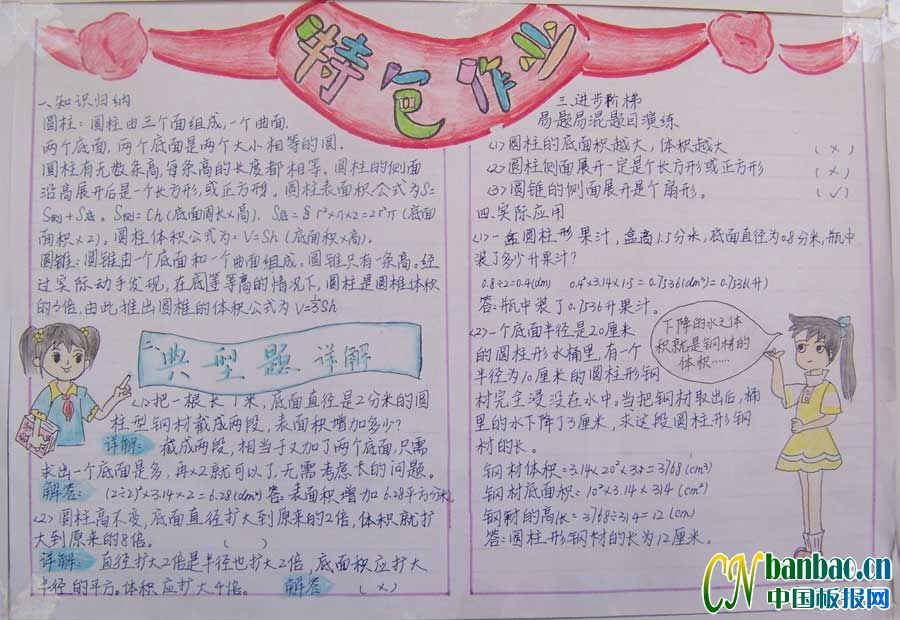 特色作业
一、知识归纳
圆柱：圆柱由三个面组成,一个曲面.
两个底面,两个底面是两个大小相等的圆.
圆柱有无数条高,每条高的长度都相等。圆柱的侧面
沿高展开后是一个长方形,或正方形。圆柱表面积公式为S=
S侧+S底。S侧=Ch(底面周长×高). S底= r²×π×2=2r²π(底面
面积×2)。圆柱体积公式为:V=Sh(底面积×高).
圆锥:圆锥由一个底面和一个曲面组成。圆锥只有1条高。经
过实际动手发现,在底等等高的情况下,圆柱是圆椎体积
的3倍,由此推出圆椎的体积公式为V=⅓Sh
二、典型题详解
(1)把一根长1米,底面直径是2分米的圆
柱型钢材截成两段,表面积增加多少?
详解:截成两段,相当于又加了两个底面,只需
求出一个底面是多,再×2就可以了,无需考虑长的问题。
解答:(2÷2)²×3.14×2=6.28(dm²)答:表面积增加6.28平方分米
(2)圆柱高不变,底面直径扩大到原来的2倍,体积就扩
大到原来的8倍。( )
详解:直径扩大2倍是半径也扩大2倍,底面积应扩大
半径的平方。体积应扩大4倍。 解答 (×)
三、进步阶梯
易题易混题目演练
(1)圆柱的底面积越大,体积越大 (×)
(2)圆柱侧面展开一定是个长方形或正方形 (×)
(3)圆锥的侧面展开是个扇形。 (√)
四、实际应用
(1)一盒圆柱形果汁,盒高1.5分米,底面直径为0.8分米,瓶中
装了多少升果汁?
0.8÷2=0.4(dm) 0.4²×3.14×1.5=0.7536(dm³)=0.7536(升)
答:瓶中装了0.7536升果汁。
(2)一个底面半径是20厘米
的圆柱形水桶里,有一个
半径为10厘米的圆柱形钢
材完全浸没在水中。当把钢材取出后,桶
里的水下降了3厘米,求这段圆柱形钢
材的长。
钢材体积:3.14×20²×3=3768(cm³)
钢材底面积:10²×3.14×314(cm²)
钢材的高长:3768÷314=12(cm)
答:圆柱形钢材的长为12厘米。
下降的水之体
积就是钢材的
体积……
CN banbao.cn
中国板报网